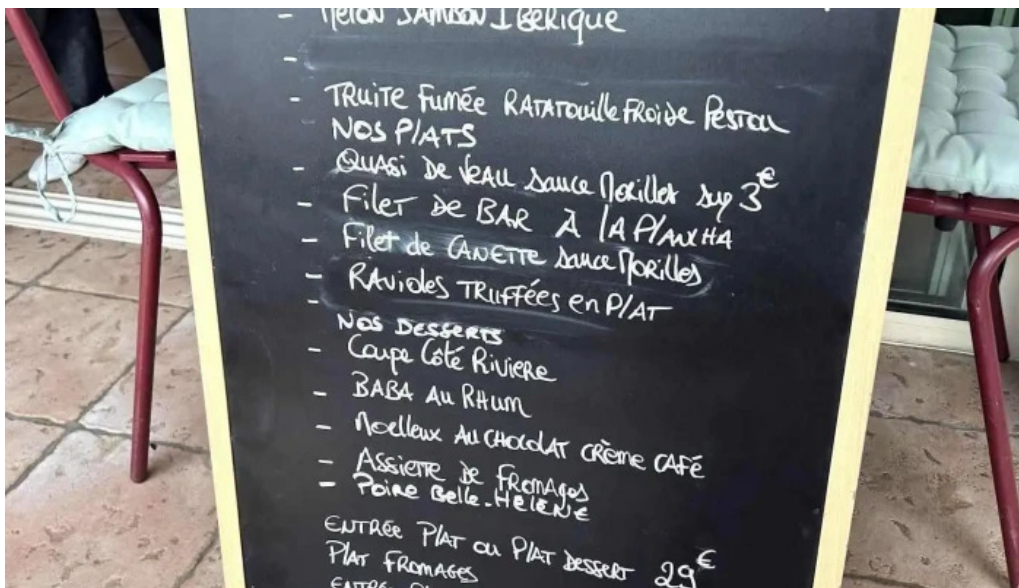 - Melon JAMBON IBERIQUE
-
- TRUITE Fumée RATATOUILLE FROIDE PESTOU
NOS PlATS
- QUASI DE VEAU sauce Morilles sup 3€
- Filet DE BAR À lA PlANXHA
- Filet de CANETTE sauce Morilles
- RAVIOLES TRUFFÉES en PlAT
-
NOS DESSERTS
- Coupe Côté RIVIERE
- BABA AU RHUM
- Moelleux AU CHOCOLAT CRÈME CAFÉ
- ASSIETTE DE FROMAGES
- POIRE Belle-HÉLÈNE
ENTRÉE PlAT ou PlAT DESSERT 29€
PlAT FROMAGES
ENTRÉE